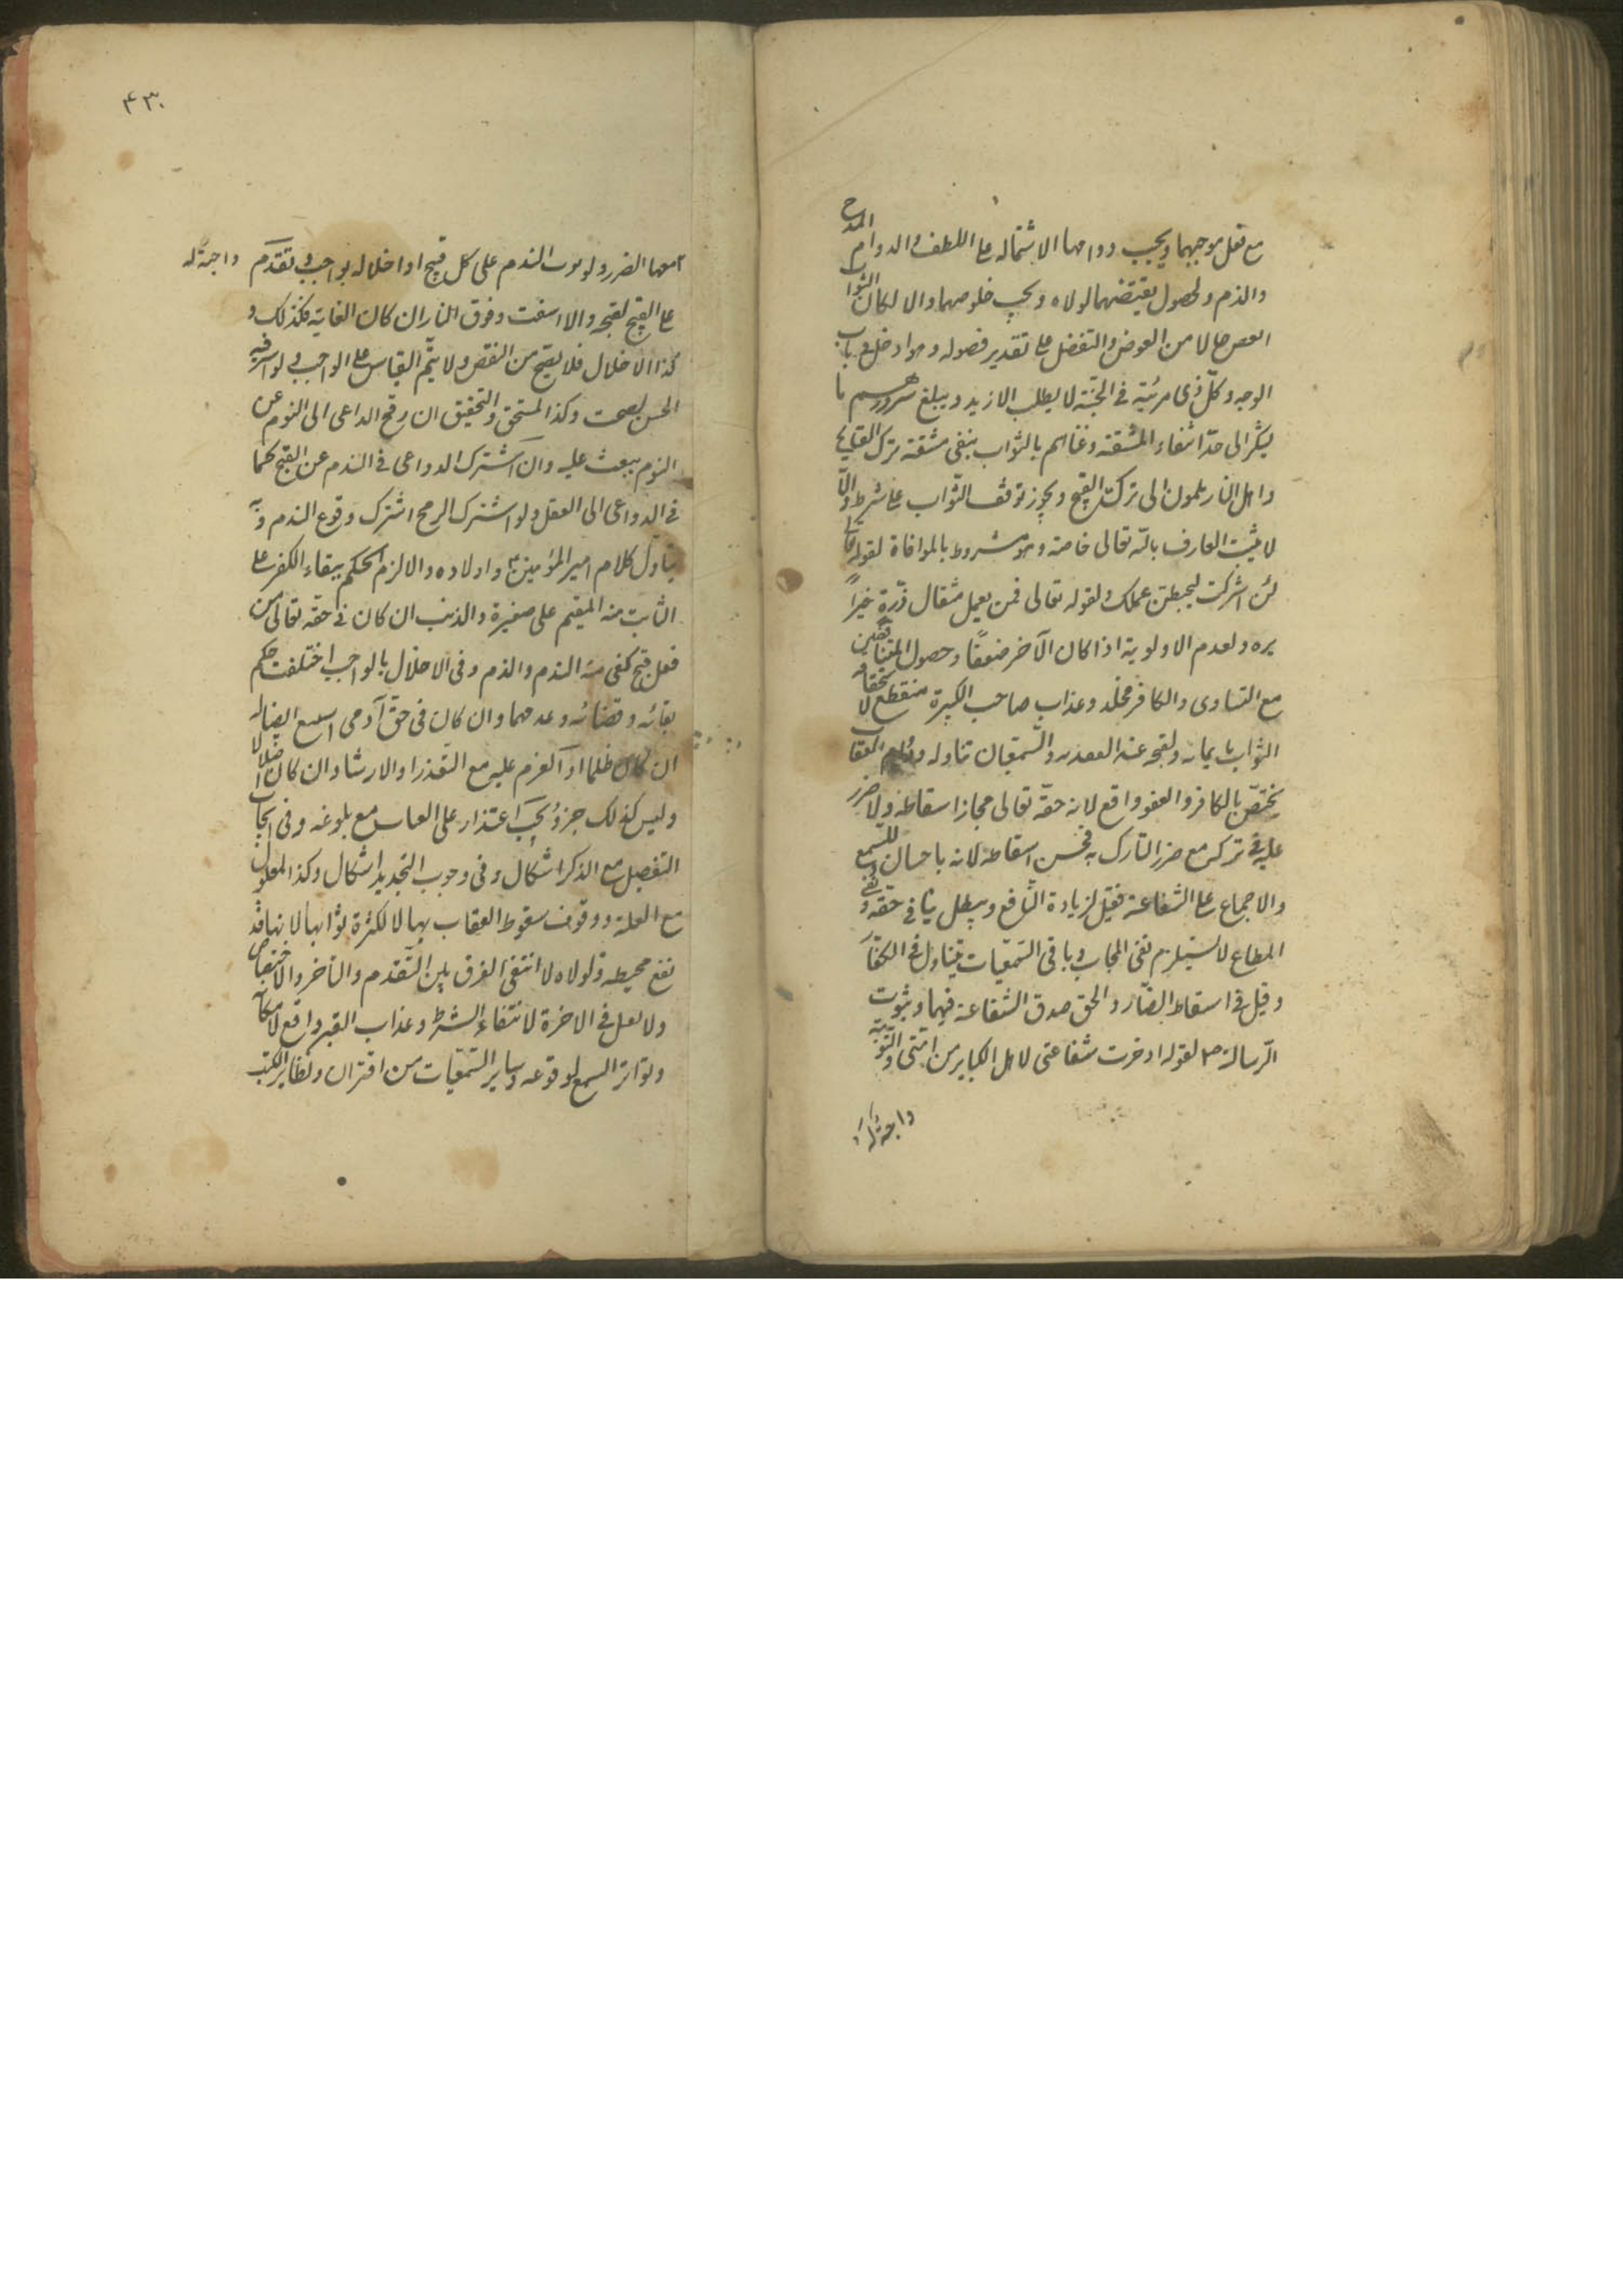 مع فعل موجبهما ويجب دوامهما لاشتماله على اللطف والدوام المدح
والذم ولحصول نقيضهما لولاه ويجب خلوصهما والا لكان الثواب
حالا من العوض والتفضل على تقدير حصوله وهو ادخل في باب
الوجه وكل ذى مرتبة في الجنة لا يطلب الازيد ويبلغ سرورهم با
لشكر الى حد انتفاء المشقة وغناهم بالثواب ينفى مشقة ترك القبايح
واهل النار يلجون الى ترك القبيح ويجوز توقف الثواب على شرط والا
لا ثيب العارف بالله تعالى خاصة وهو مشروط بالموافاة لقوله تعالى
لئن اشركت ليحبطن عملك ولقوله تعالى فمن يعمل مثقال ذرة خيرا
يره ولعدم الاولوية اذا كان الآخر ضعفا وحصول المتناقضين
مع التساوى والكافر مخلد وعذاب صاحب الكبيرة منقطع لاستحقاقه
الثواب بايمانه ولقبحه عند العقلاء والسمعيات متاولة ودوام العقاب
يختص بالكافر والعفو واقع لانه حقه تعالى فجاز اسقاطه ولا ضرر
عليه في تركه مع ضرر التارك به فحسن اسقاطه لانه باحسان للسمع
والاجماع على الشفاعة فقيل لزيادة النافع ويبطل بنا في حقه ونفى
المطاع لا يستلزم نفى المجاب وباقى السمعيات متناول في الكفار
وقيل في اسقاط المضار والحق صدق الشفاعة فيهما وثبوت
الرسالة ص لقوله ادخرت شفاعتى لاهل الكباير من امتى والتوبة
واجبة له
۴۳۰
معها الضرر ولوجوب الندم على كل قبيح او اخلاله بواجب وتقدم واجبة له
على القبيح لقبحه والا انتفت وخوف النار ان كان الغاية فكذلك و
كذا الاخلال فلا يصح من البعض ولا يتم القياس على الواجب ولو
الحسن لصحت وكذا المستحق والتحقيق ان ترجح الداعى الى الندم عن
يبعث عليه وان اشترك الدواعى في الندم عن القبيح كما
في الدواعى الى الفعل ولو اشترك الترجح اشترك وقوع الندم وبه
يتاول كلام امير المؤمنين ع واولاده والا لزم الحكم ببقاء الكفر على
التائب منه المقيم على صغيرة والذنب ان كان في حقه تعالى من
فعل قبح كفى منه الندم والذم وفي الاخلال بالواجب اختلفت حكم
بقائه وقضائه وعدمهما وان كان في حق آدمى ايصاله
ان كان ظلما او العزم عليه مع التعذر او الارشاد ان كان اضلالا
وليس كذلك جزؤ ويجب اعتذار على مع بلوغه وفي ايجاب
التفصيل مع الذكر اشكال وفي وجوب التجديد اشكال وكذا المعلول
مع العلة ووقوف سقوط العقاب بها لا لكثرة ثوابها لانها قد
تقع محبطة ولولاه لا انتفى الفرق بين التقدم والتأخر والاختصاص
ولا تقبل في الآخرة لانتفاء الشرط وعذاب القبر واقع لامكانه
وتواتر السمع لوقوعه وساير السمعيات من اقتران وتطاير الكتب